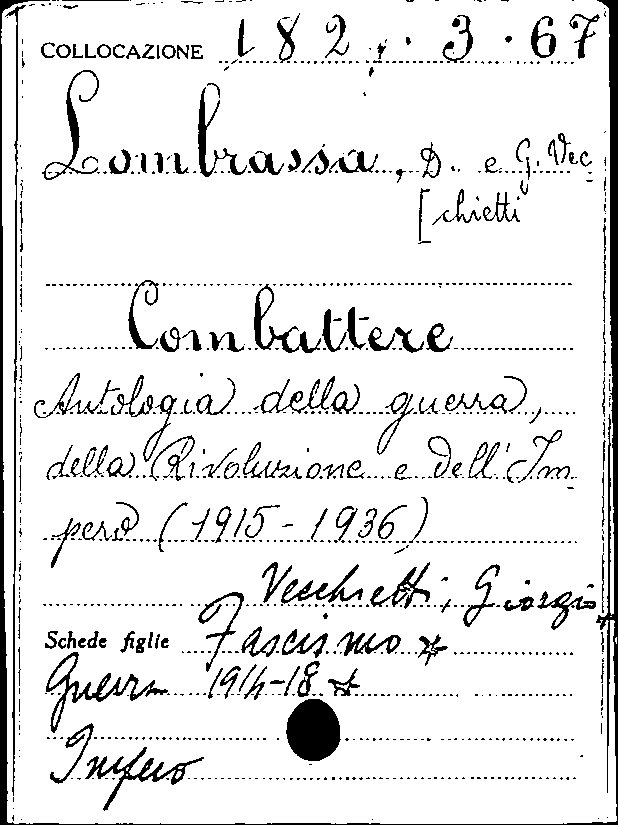 COLLOCAZIONE 182.3.67
Lombrassa, D. e G. Vec-
[chietti
Combattere
Antologia della guerra,
della Rivoluzione e dell'Im-
pero (1915-1936)
Vecchietti, Giorgio *
Schede figlie Fascismo *
Guerra 1914-18 *
Impero